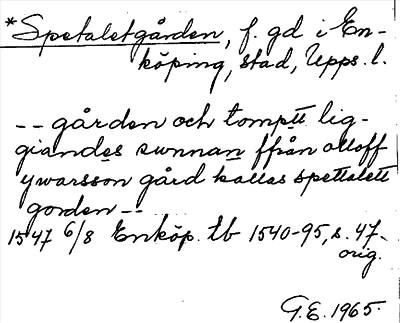 *Spetaletgården, f. gd i En-
köping, stad, Upps. l.
-- gården och tomptt lig-
giandes sunnan ffrån olloff
ywarsson gård kallas spettalett
gorden --
1547 6/8 Enköp. tb 1540-95, s. 47.
orig.
G.E. 1965.